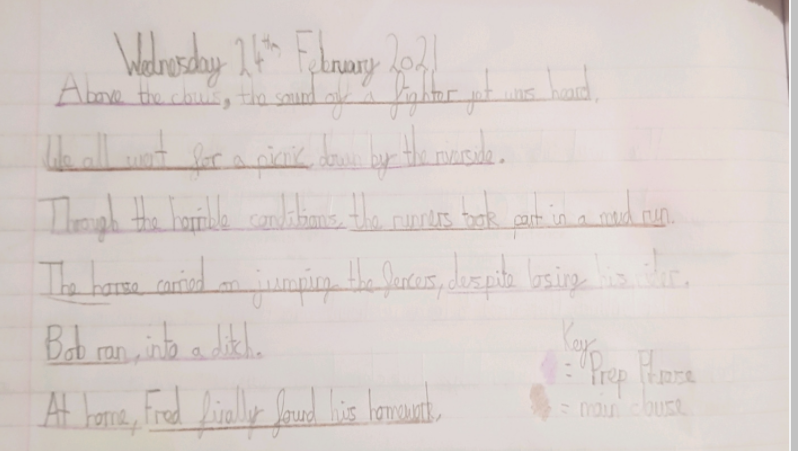 Wednesday 24th February 2021
Above the clouds, the sound of a fighter jet was heard.
We all went for a picnic, down by the riverside.
Through the horrible conditions, the runners took part in a mud run.
The horse carried on jumping the fences, despite losing his rider.
Bob ran, into a ditch.
At home, Fred finally found his homework.
Key
= Prep Phrase
= main clause